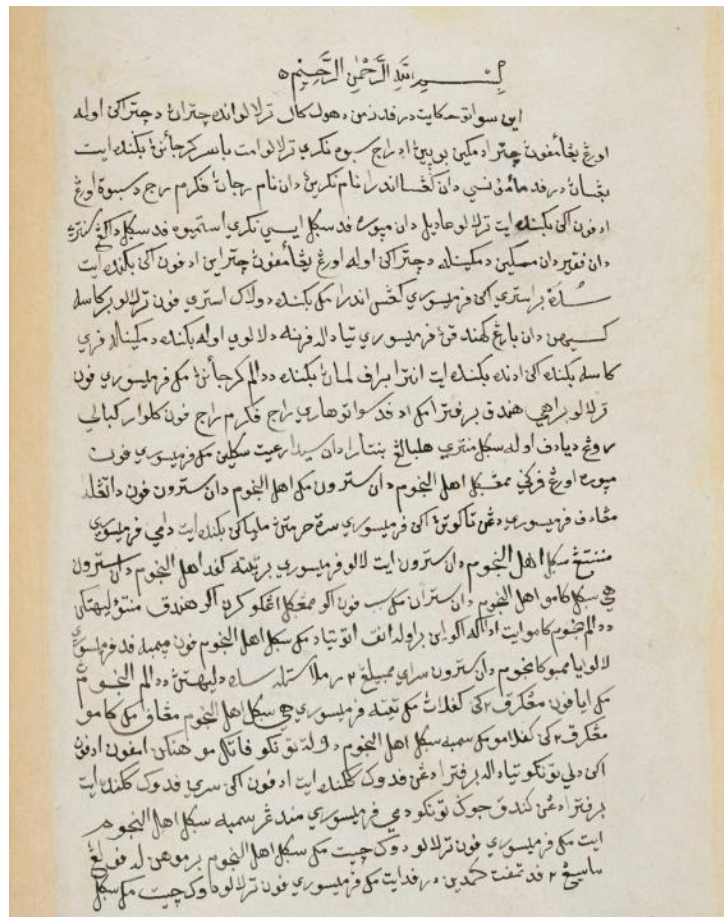 بِسْمِ اللهِ الرَّحْمٰنِ الرَّحِيْمِ
اين سواتو حكايت درفد زمن دهولو كال ترلالو انده چتراڽ دچتراكن اوله
اورڠ يڠامفون چترا دمكين بوڽيڽ اد راج سبوه نكري ترلالو امت باسر كرجأنڽ بكنده ايت
بڠساڽ درفد دان نام نكرين دان نام رجاڽ فكرم رجا د سبوة اورڠ
ادفون اكن بكنده ايت ترلالو عاديل دان موره فد سكل ايسي نكري استميوه فد سكل داكڠ
دان فقير دان مسكين دمكينله دچتراكن اوله اورڠ يڠامفون چتراين ادفون اكن بكنده ايت
سده براستري اكن فرميسوري اندرا مك بكنده دولاك استري فون ترلالو بركاسه
كسيهن دان بارڠ كهندق فرميسوري تياد اله فرنه دلالوي اوله بكنده دمكيناله فري
كاسه بكنده اكن ادند بكنده ايت انترا براف لماڽ بكنده ددالم كرجأنڽ مك فرميسوري فون
ترلالو براهي هندق برفترا مك اد فد سواتو هاري راج فكرم راج فون كلوار كبالي
روڠ ديادف اوله سكل منتري هلبالڠ بنتارا دان سيدا رعيت سكلين مك فرميسوري فون
ميوره اورڠ فركي ممڠكل اهل النجوم دان سترون مك اهل النجوم دان سترون فون داتڠله
مڠادف فرميسوري دڠن تاكوتڽ اكن فرميسوري سرة حرمتڽ ملياكن بكنده ايت دامي فرميسوري
سكل اهل النجوم دان سترون ايت لالو فرميسوري برتيته كفد اهل النجوم دان سترون
هي سكل كامو اهل النجوم دان ستران مك سب فون اكو ممڠكل اڠكو كرن اكو هندق ليهتكن
ددالم نجوم كامو ايت اداكه اكو اين براوله انق اتو تياد مك سكل اهل النجوم فون ميمبه فد فرميسوري
لالو يا ممبوكا نجوم دان سترون سراي ممبيلڠ٢ رمل ستله سده دليهتڽ ددالم النجوم
مك ايا فون مڠكرق٢كن كفلاڽ مك تيته فرميسوري هي سكل اهل النجوم مڠاف مك كامو
مڠكرق٢كن كفلامو مك سمبه سكل اهل النجوم دولة توانكو فاتك موهنكن امفون ادفون
اكن دلي توانكو تياداله برفترا دڠن فدوك كاكنده ايت ادفون اكن سري فدوك كاكنده ايت
برفترا دڠن كندق جوك توانكو دمي فرميسوري مندڠر سمبه سكل اهل النجوم
ايت مك فرميسوري فون ترلالو دوك چيت مك سكل اهل النجوم برموهن له فولڠ
ماسيڠ٢ فد تمفت كدمين درفدايت مك فرميسوري فون ترلالو دوك چيت مك سكل